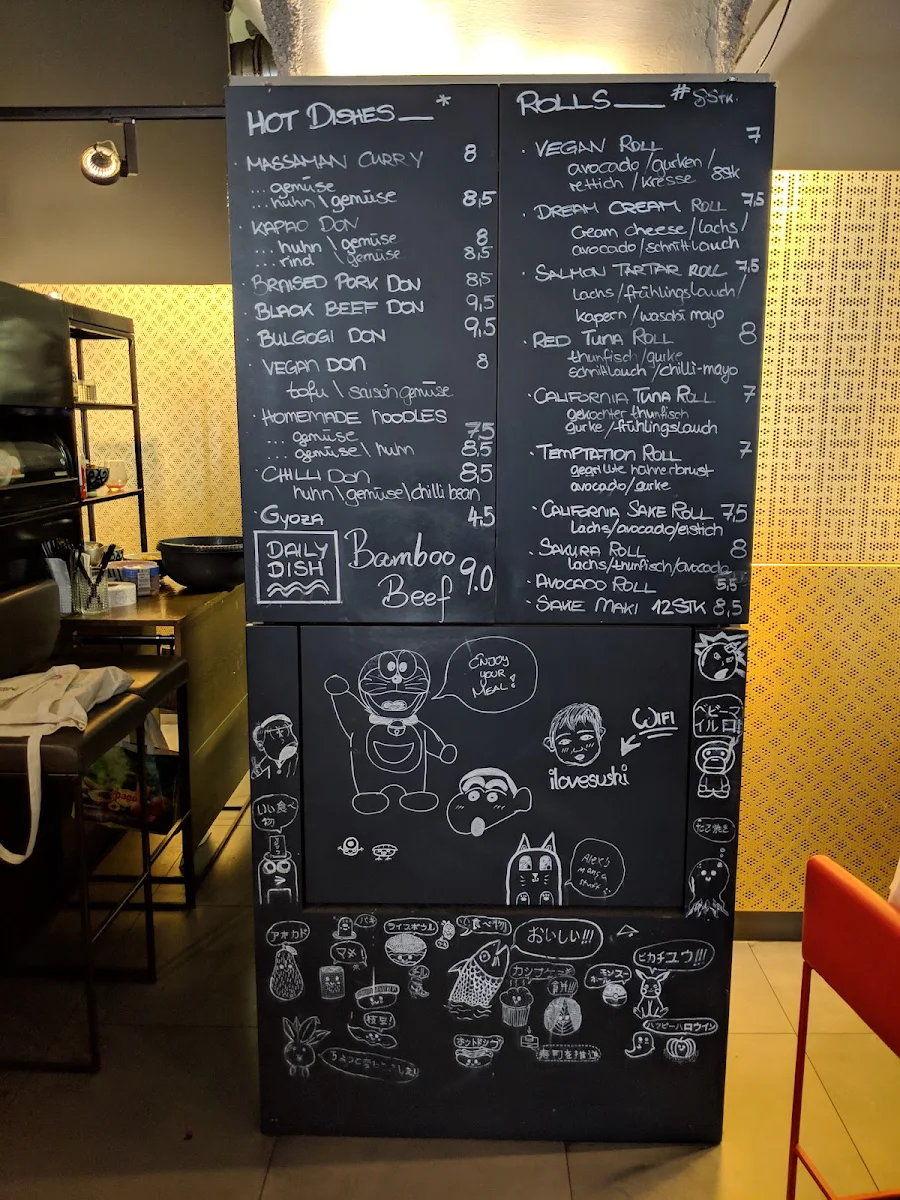 HOT DISHES__*
· MASSAMAN CURRY 8
... gemüse
... huhn \ gemüse 8,5
· KAPAO DON
... huhn \ gemüse 8
... rind \ gemüse 8,5
· BRAISED PORK DON 8,5
· BLACK BEEF DON 9,5
· BULGOGI DON 9,5
· VEGAN DON 8
tofu \ saisongemüse
· HOMEMADE NOODLES
... gemüse 7,5
... gemüse \ huhn 8,5
· CHILLI DON 8,5
huhn \ gemüse \ chilli bean
· GYOZA 4,5
DAILY
DISH
Bamboo
Beef 9.0
ROLLS___# 8STK.
· VEGAN ROLL 7
avocado / gurken /
rettich / kresse 8stk
· DREAM CREAM ROLL 7,5
Cream cheese / lachs /
avocado / schnittlauch
· SALMON TARTAR ROLL 7,5
lachs / frühlingslauch /
kapern / wasabi mayo
· RED TUNA ROLL 8
thunfisch / gurke
schnittlauch / chilli-mayo
· CALIFORNIA TUNA ROLL 7
gekochter thunfisch
gurke / frühlingslauch
· TEMPTATION ROLL 7
gegrillte hühnerbrust
avocado / gurke
· CALIFORNIA SAKE ROLL 7,5
lachs / avocado / eistich
· SAKURA ROLL 8
lachs / thunfisch / avocado
· AVOCADO ROLL 5,5
· SAKE MAKI 12STK 8,5
ENJOY
YOUR
MEAL!
WIFI
ilovesushi
ベビーマ
イルロ!
いい食べ
物
たこ焼き
Alex's
manga
アボカド
マメ!
ライスボウル
食べ物
おいしい!!!
カップケーキ
ピカチュウ!!!
枝豆!
ホットドッグ
ハッピーハロウイン